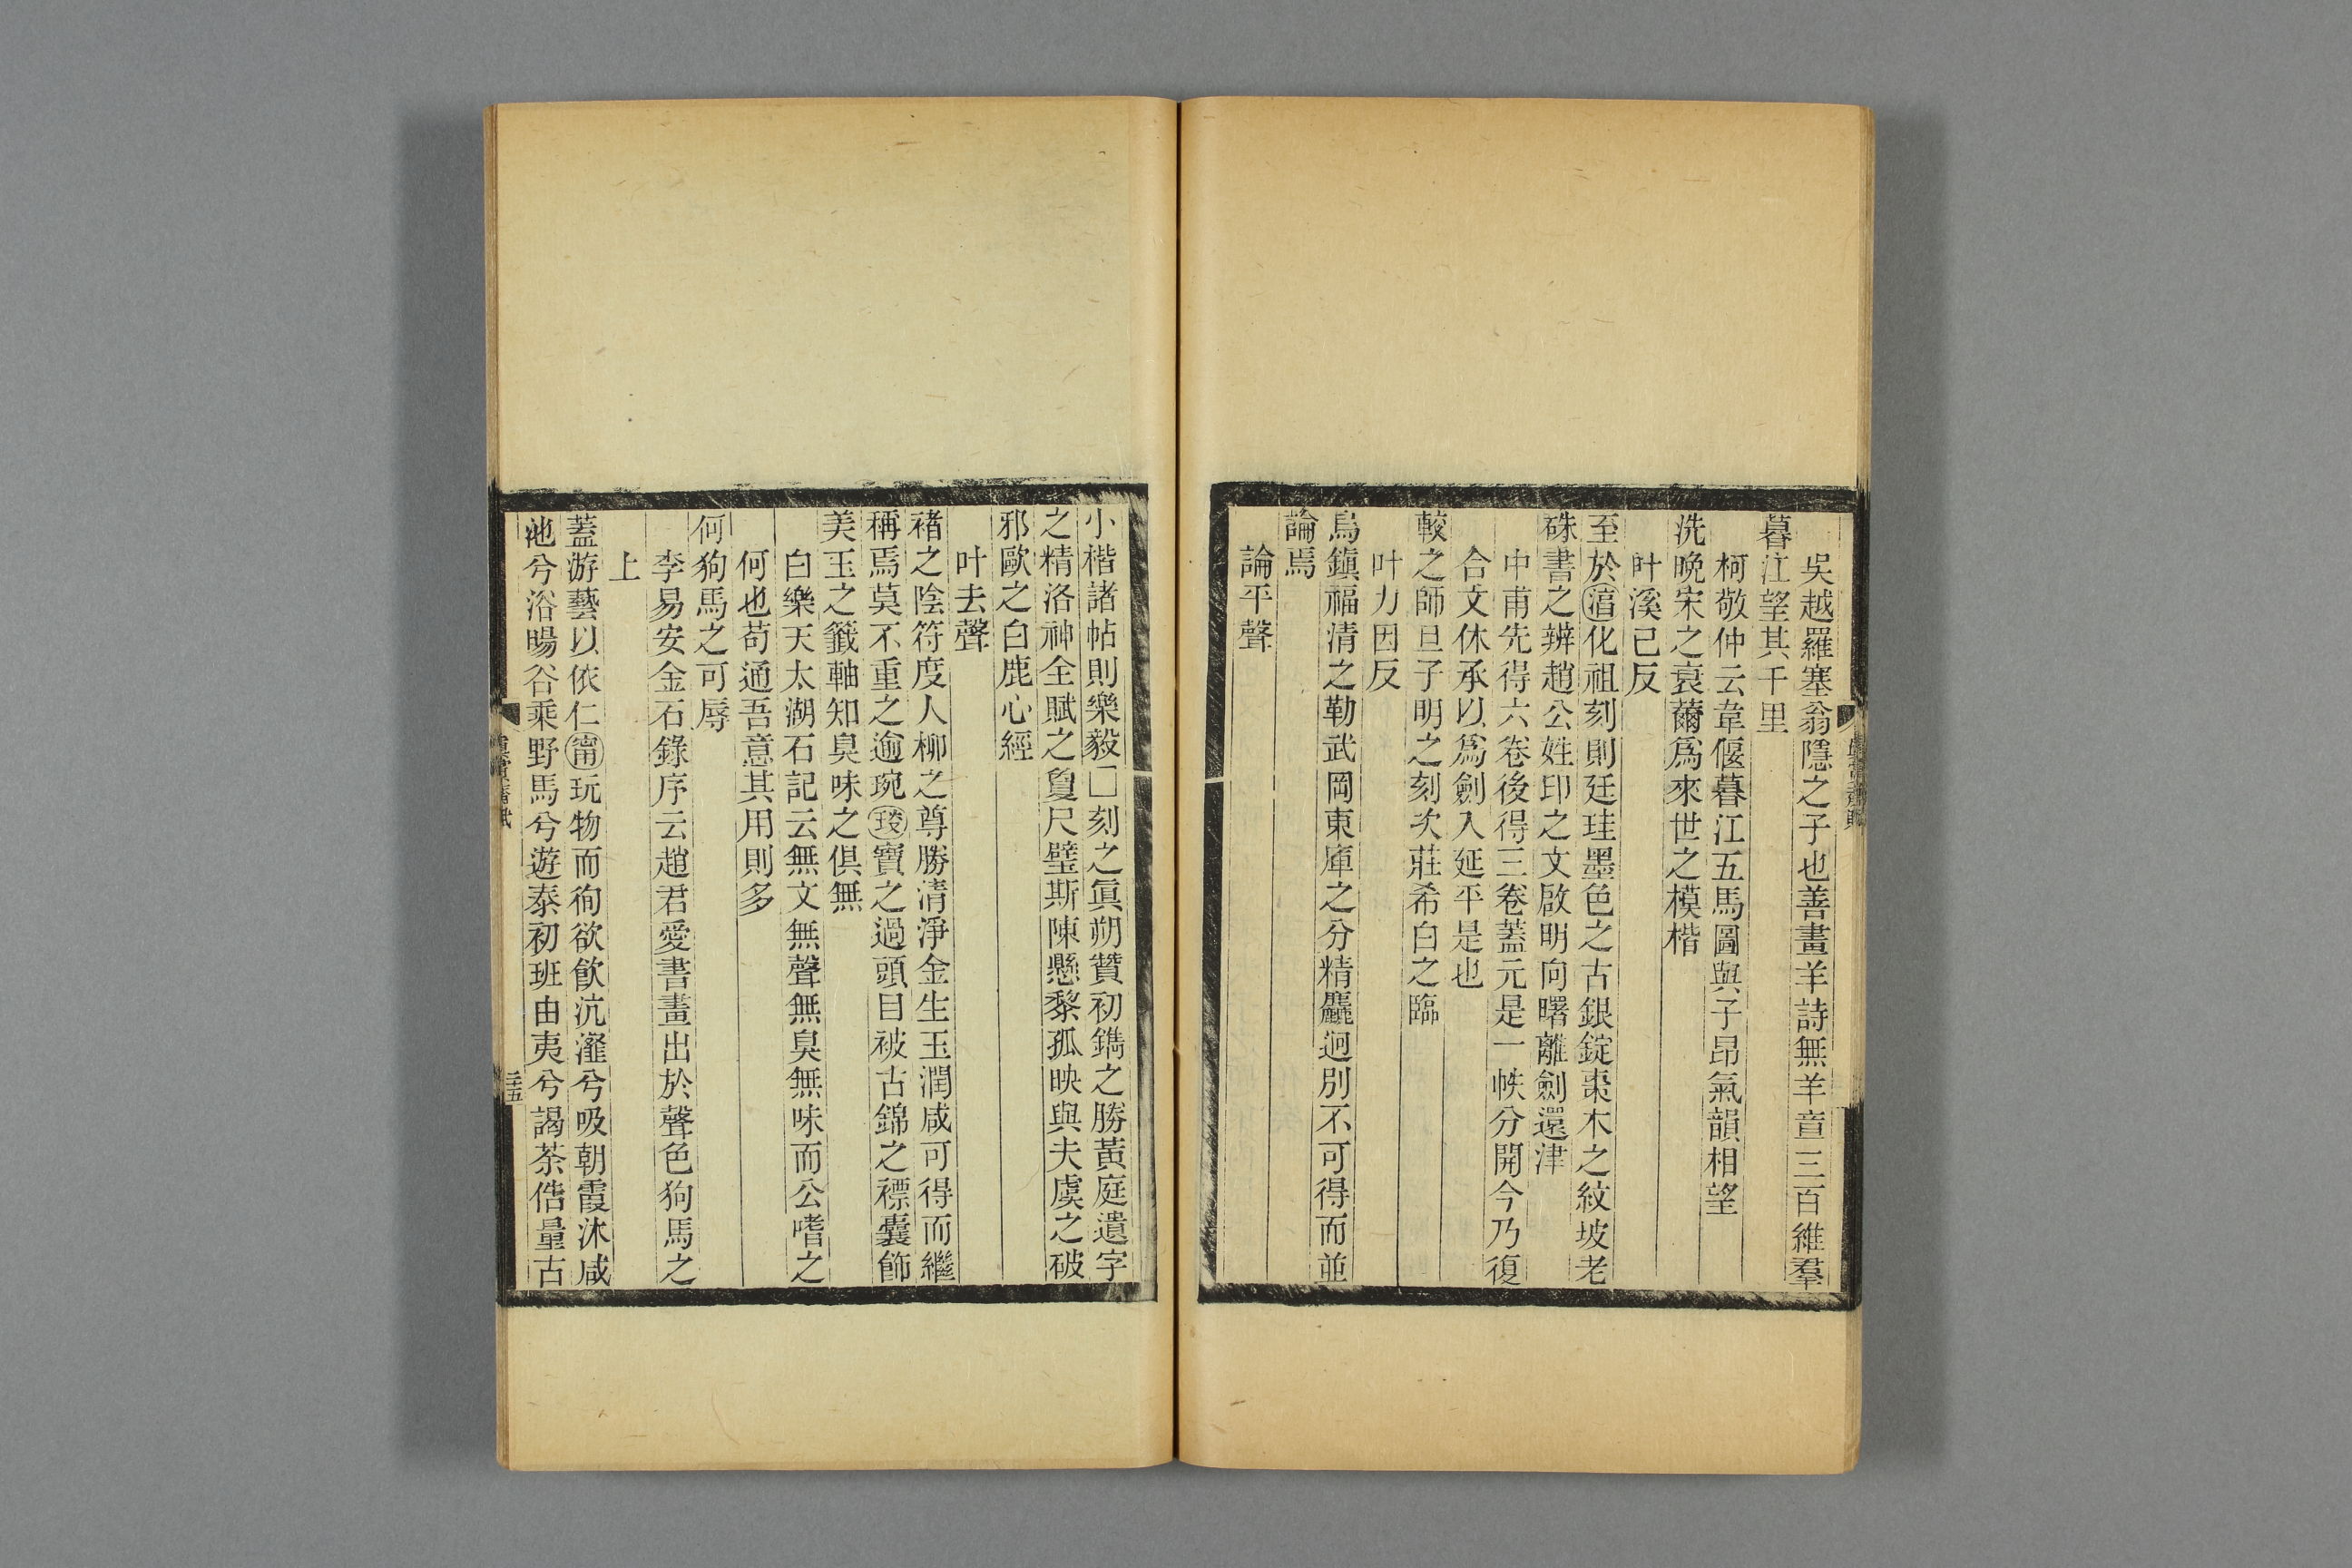 吳越羅塞翁隱之子也善畫羊詩無羊章三百維羣
暮江望其千里
柯敬仲云韋偃暮江五馬圖與子昂氣韻相望
洗晩宋之衰薾爲來世之模楷
叶溪己反
至於淳化祖刻則廷珪墨色之古銀錠棗木之紋坡老
硃書之辨趙公姓印之文啟明向曙離劍還津
中甫先得六卷後得三卷蓋元是一帙分開今乃復
合文休承以爲劍入延平是也
較之師旦子明之刻次莊希白之臨
叶力因反
烏鎭福清之勒武岡東庫之分精麤迥別不可得而並
論焉
論平聲
小楷諸帖則樂毅□刻之眞朔贊初鐫之勝黃庭遺字
之精洛神全賦之敻尺璧斯陳懸黎孤映與夫虞之破
邪歐之白鹿心經
叶去聲
褚之陰符度人柳之尊勝清淨金生玉潤咸可得而繼
稱焉莫不重之逾琬琰寶之過頭目被古錦之褾囊飾
美玉之籤軸知臭味之俱無
白樂天太湖石記云無文無聲無臭無味而公嗜之
何也苟通吾意其用則多
何狗馬之可辱
李易安金石錄序云趙君愛書畫出於聲色狗馬之
上
蓋游藝以依仁甯玩物而徇欲飮沆瀣兮吸朝霞沐咸
池兮浴暘谷乘野馬兮遊泰初班由夷兮謁荼俈量古
二十五